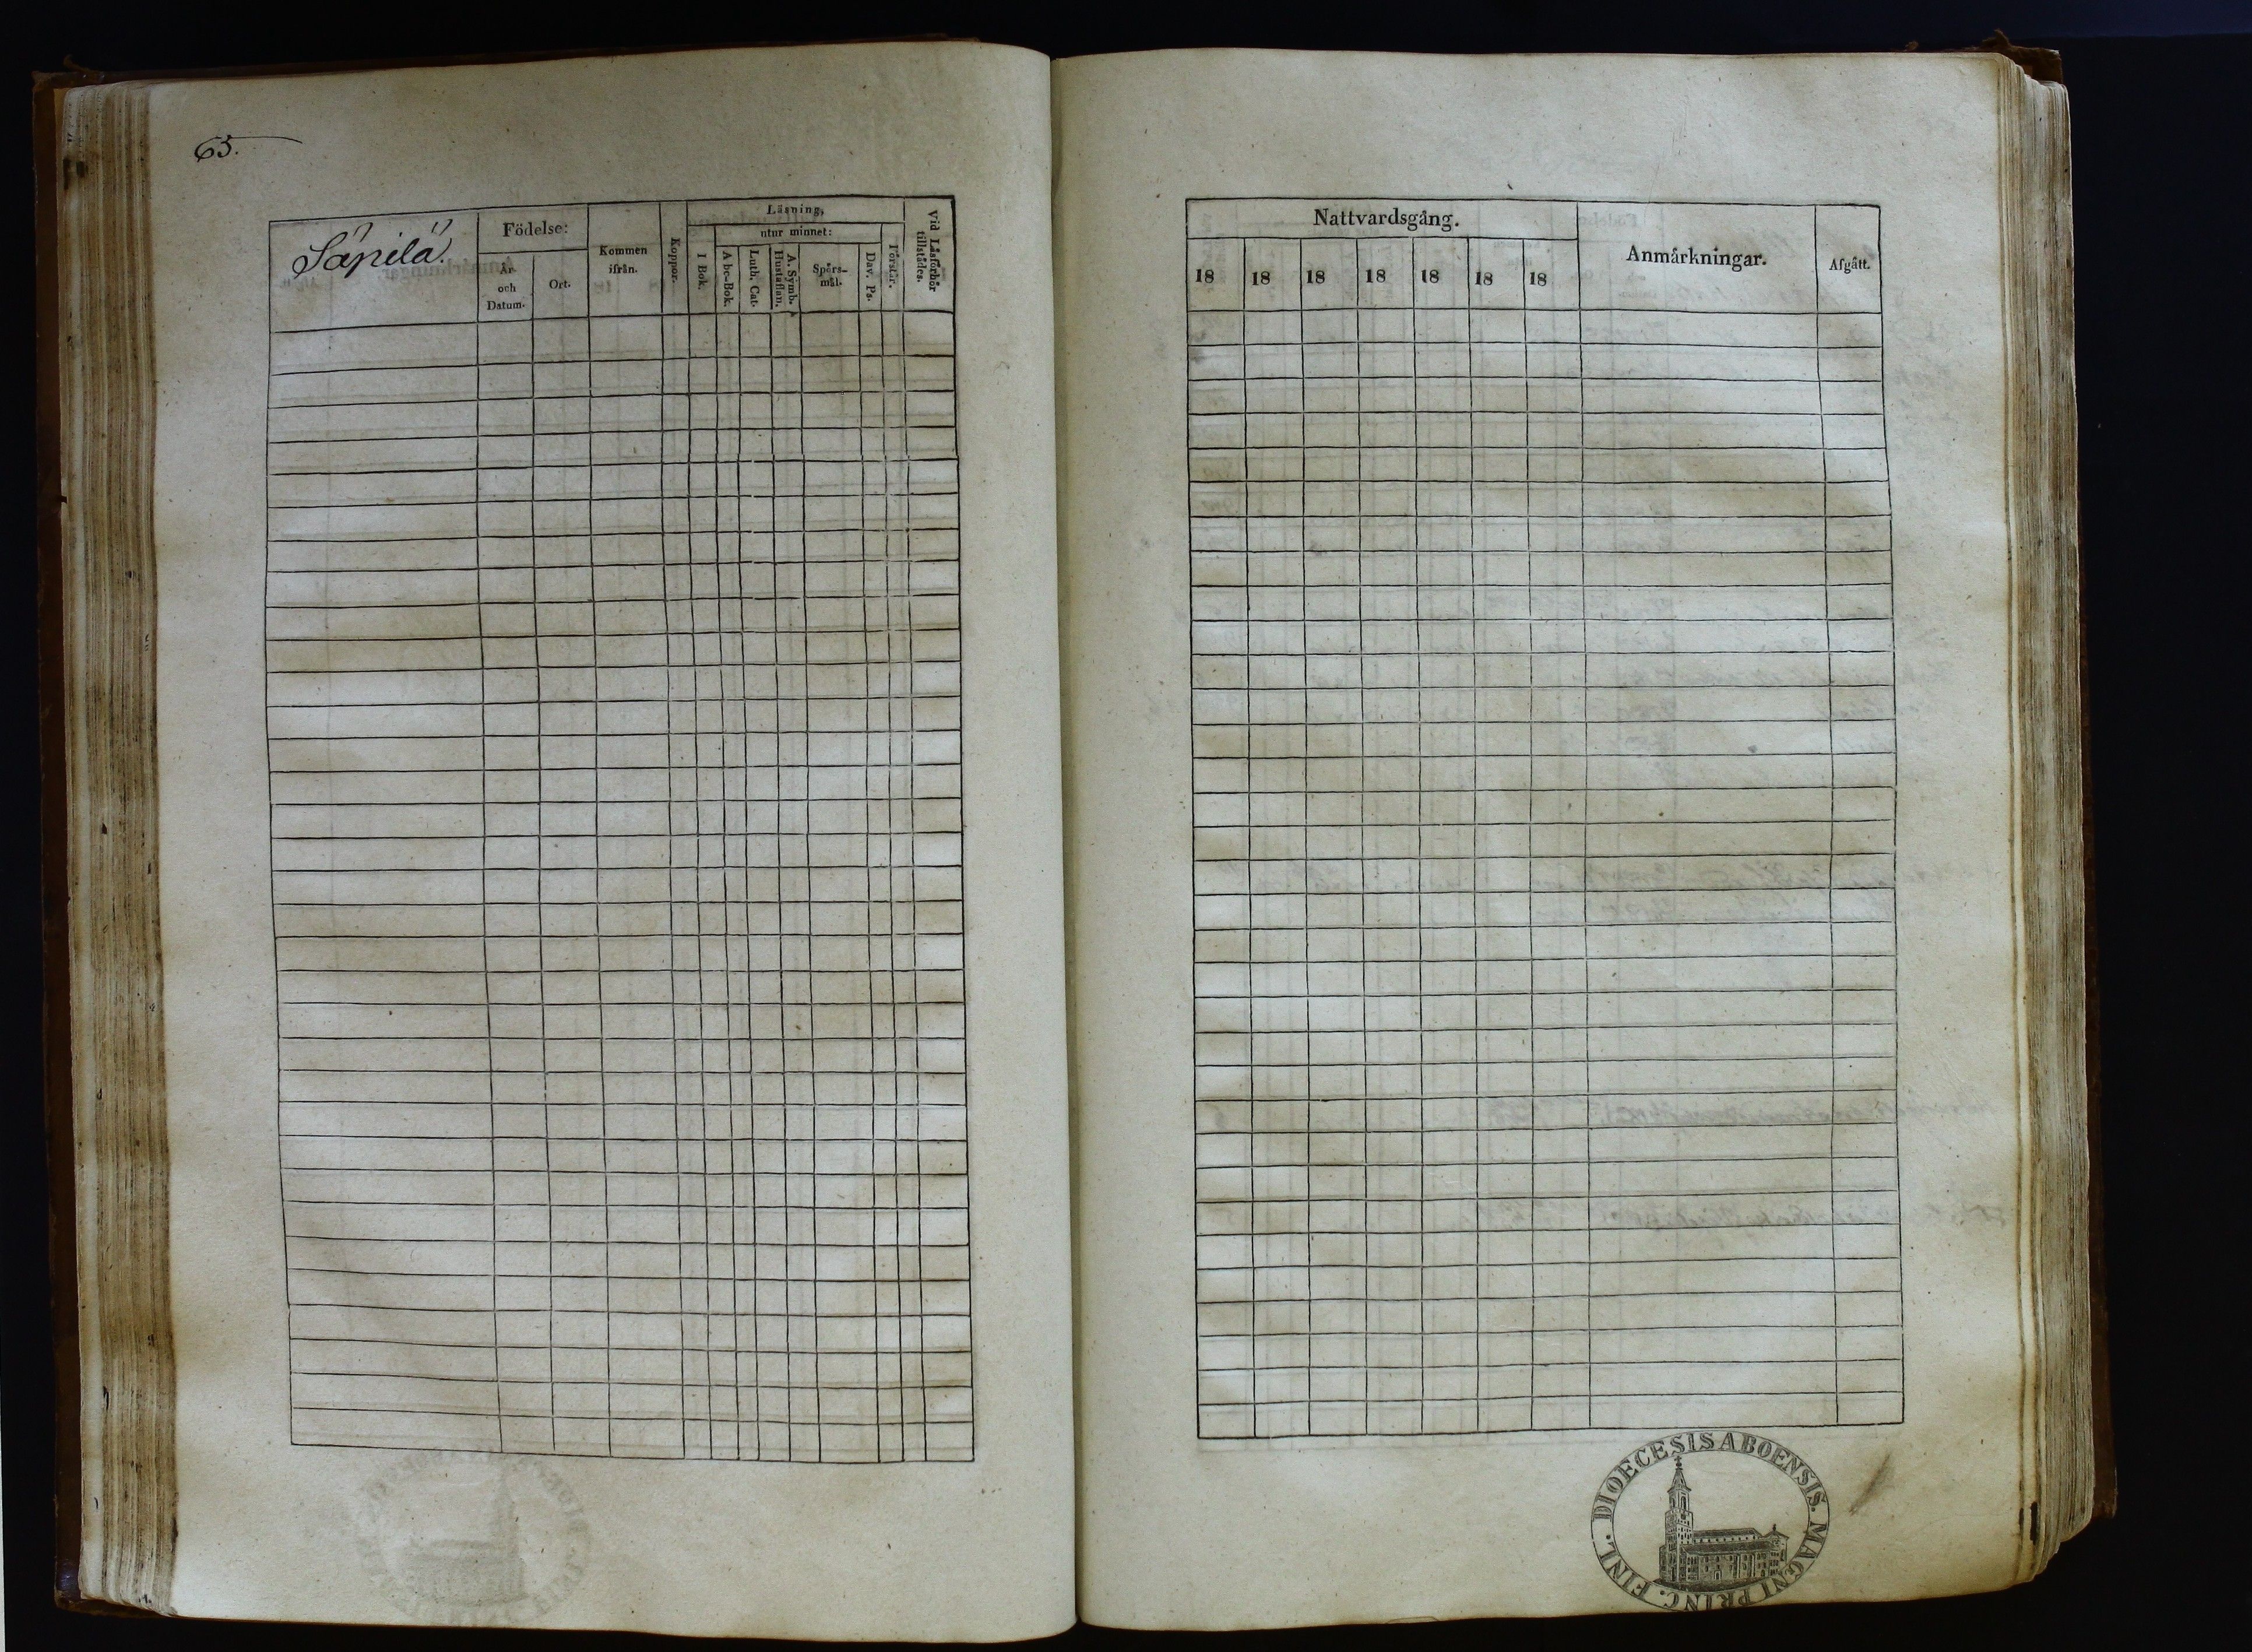 63.
Säpilä.
Födelse:
År och Datum.
Ort.
Kommen ifrån.
Koppor.
Läsning,
utur minnet:
I Bok.
A bc-Bok.
Luth. Cat.
A. Symb. Hustaflan.
Spörsmål.
Dav. Ps.
Förstår.
Vid Läsförhör tillstädes.
Nattvardsgång.
18 18 18 18 18 18 18
Anmärkningar.
Afgått.
DIOECESIS ABOENSIS. MAGNI PRINC. FINL.